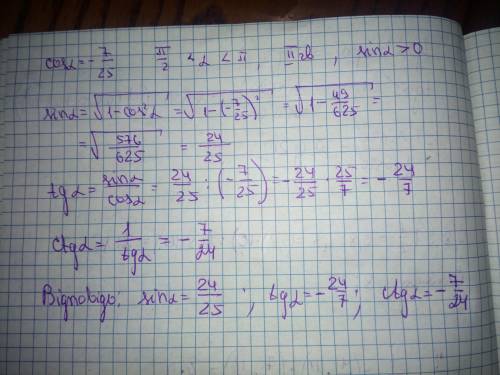 cosα = -7/25   π/2 < α < π, II чв, sinα > 0
sinα = √(1-cos²α) = √(1-(-7/25)²) = √(1-49/625) =
= √(576/625) = 24/25
tgα = sinα/cosα = 24/25 : (-7/25) = -24/25 · 25/7 = -24/7
ctgα = 1/tgα = -7/24
Відповідь: sinα = 24/25; tgα = -24/7; ctgα = -7/24